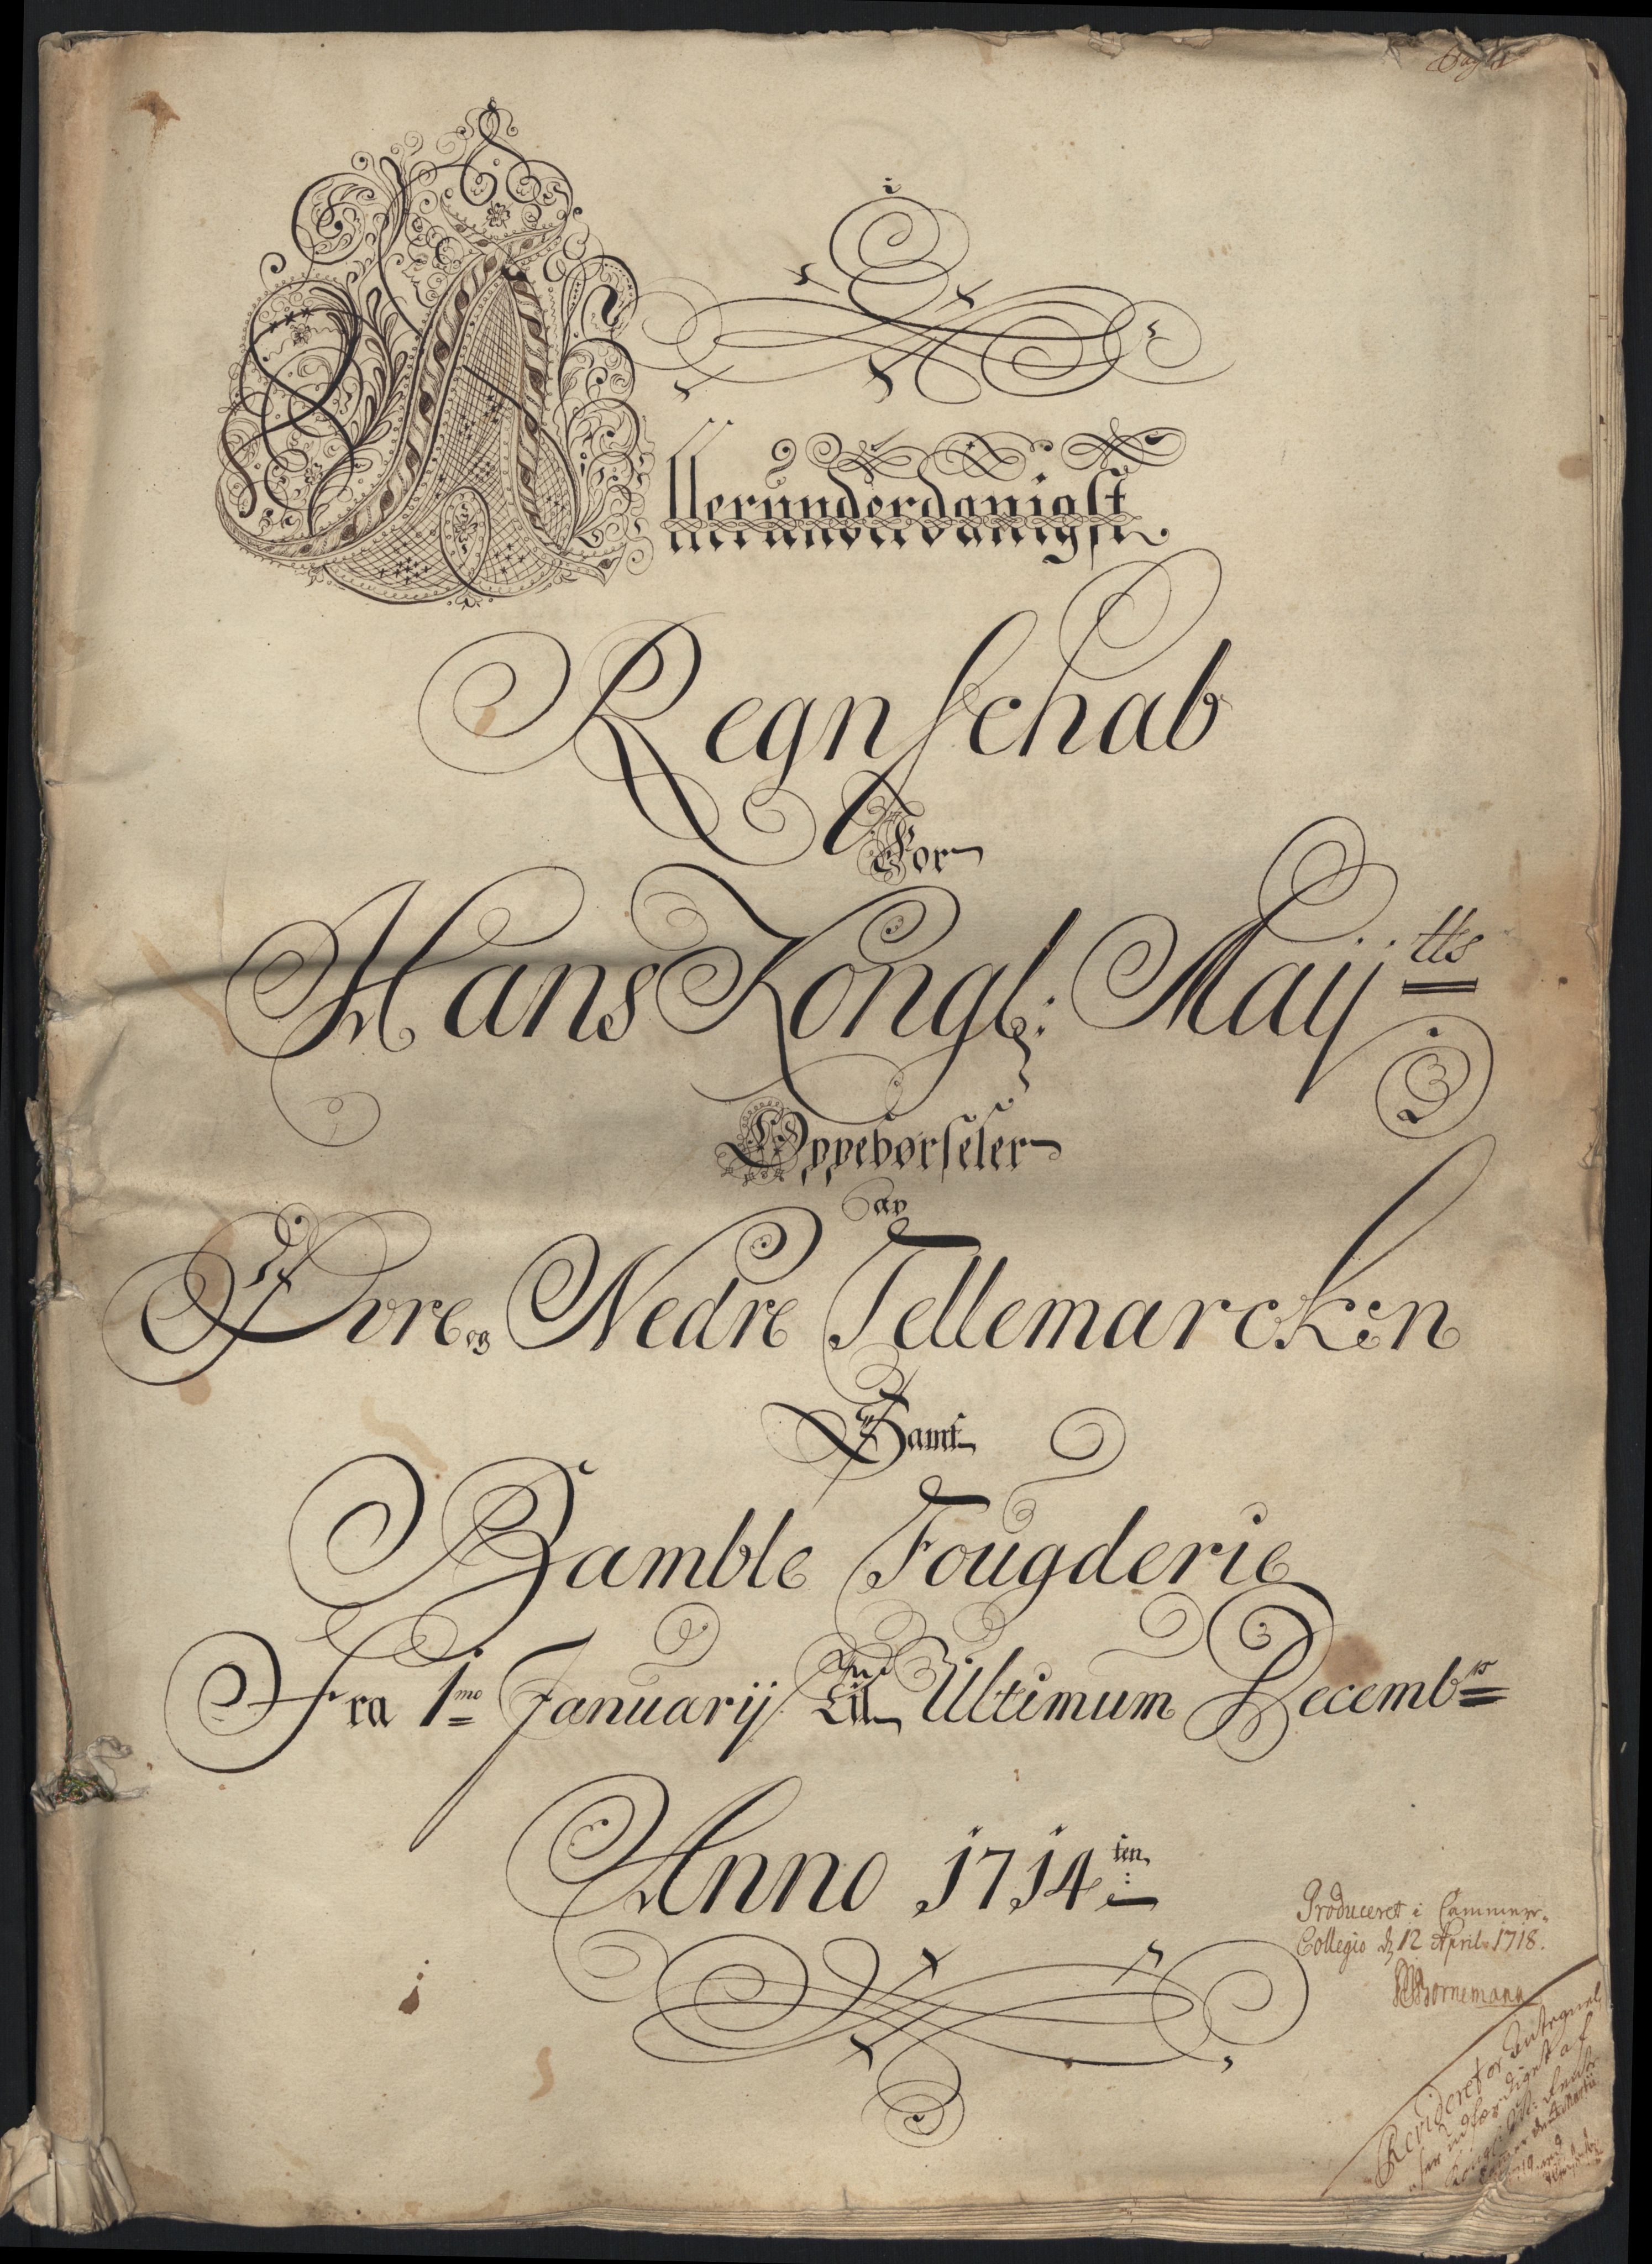 Allerunderdanigst
Regnschab
For
Hans Kongl: Maij tts
Oppebørseler
av
Øvre og Nedre Tellemarcken
Samt
Bamble Fougderie
Fra 1mo Januarij Til Ultimum Decembr
Anno 1714 ten
Produceret i Cammer-
Collegio d 12 April 1718.
Bornemann
Revideret or